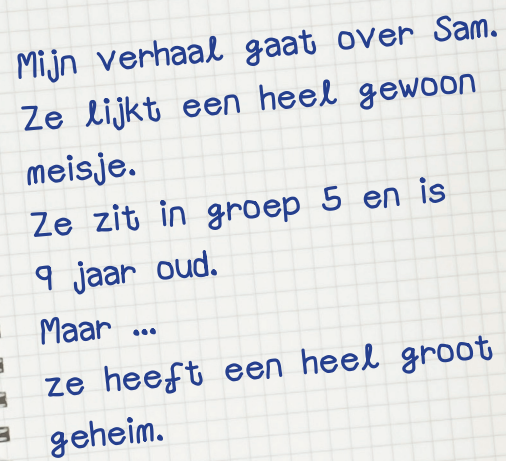 Mijn verhaal gaat over Sam.
Ze lijkt een heel gewoon
meisje.
Ze zit in groep 5 en is
9 jaar oud.
Maar ...
ze heeft een heel groot
geheim.